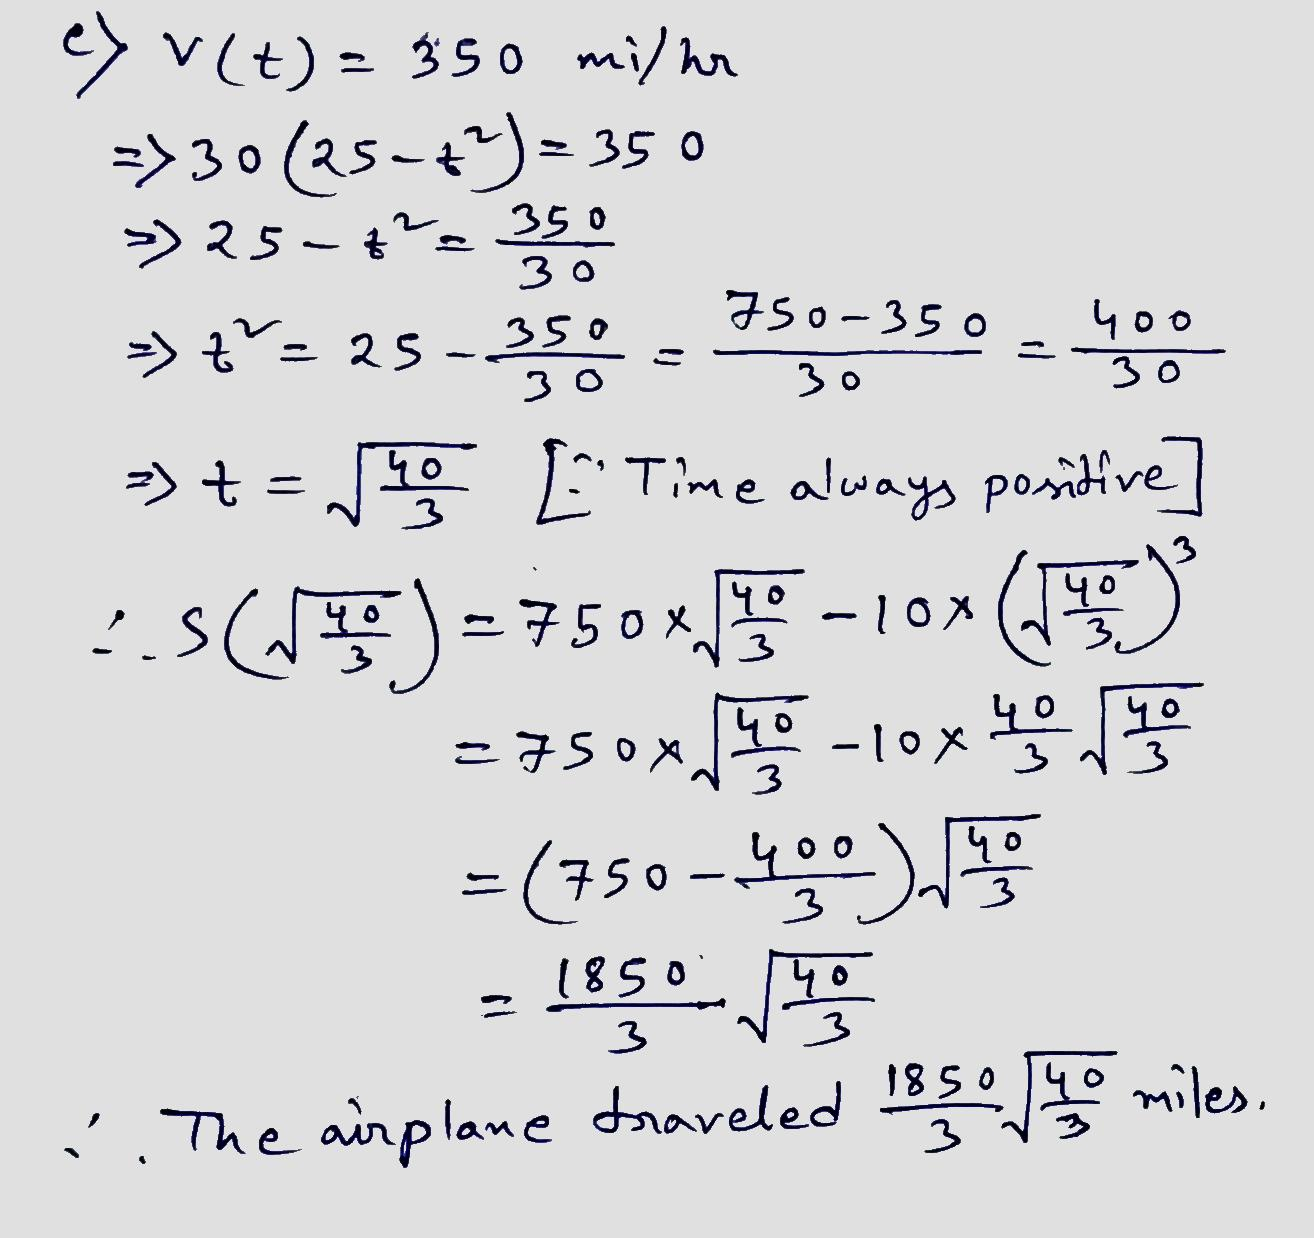 e) v(t) = 350 mi/hr
=> 30(25-t²) = 350
=> 25-t² = 350/30
=> t² = 25 - 350/30 = 750-350/30 = 400/30
=> t = √(40/3) [∵ Time always positive]
∴ S(√(40/3)) = 750 × √(40/3) - 10 × (√(40/3))³
= 750 × √(40/3) - 10 × 40/3 √(40/3)
= (750 - 400/3) √(40/3)
= 1850/3 √(40/3)
∴ The airplane traveled 1850/3 √(40/3) miles.